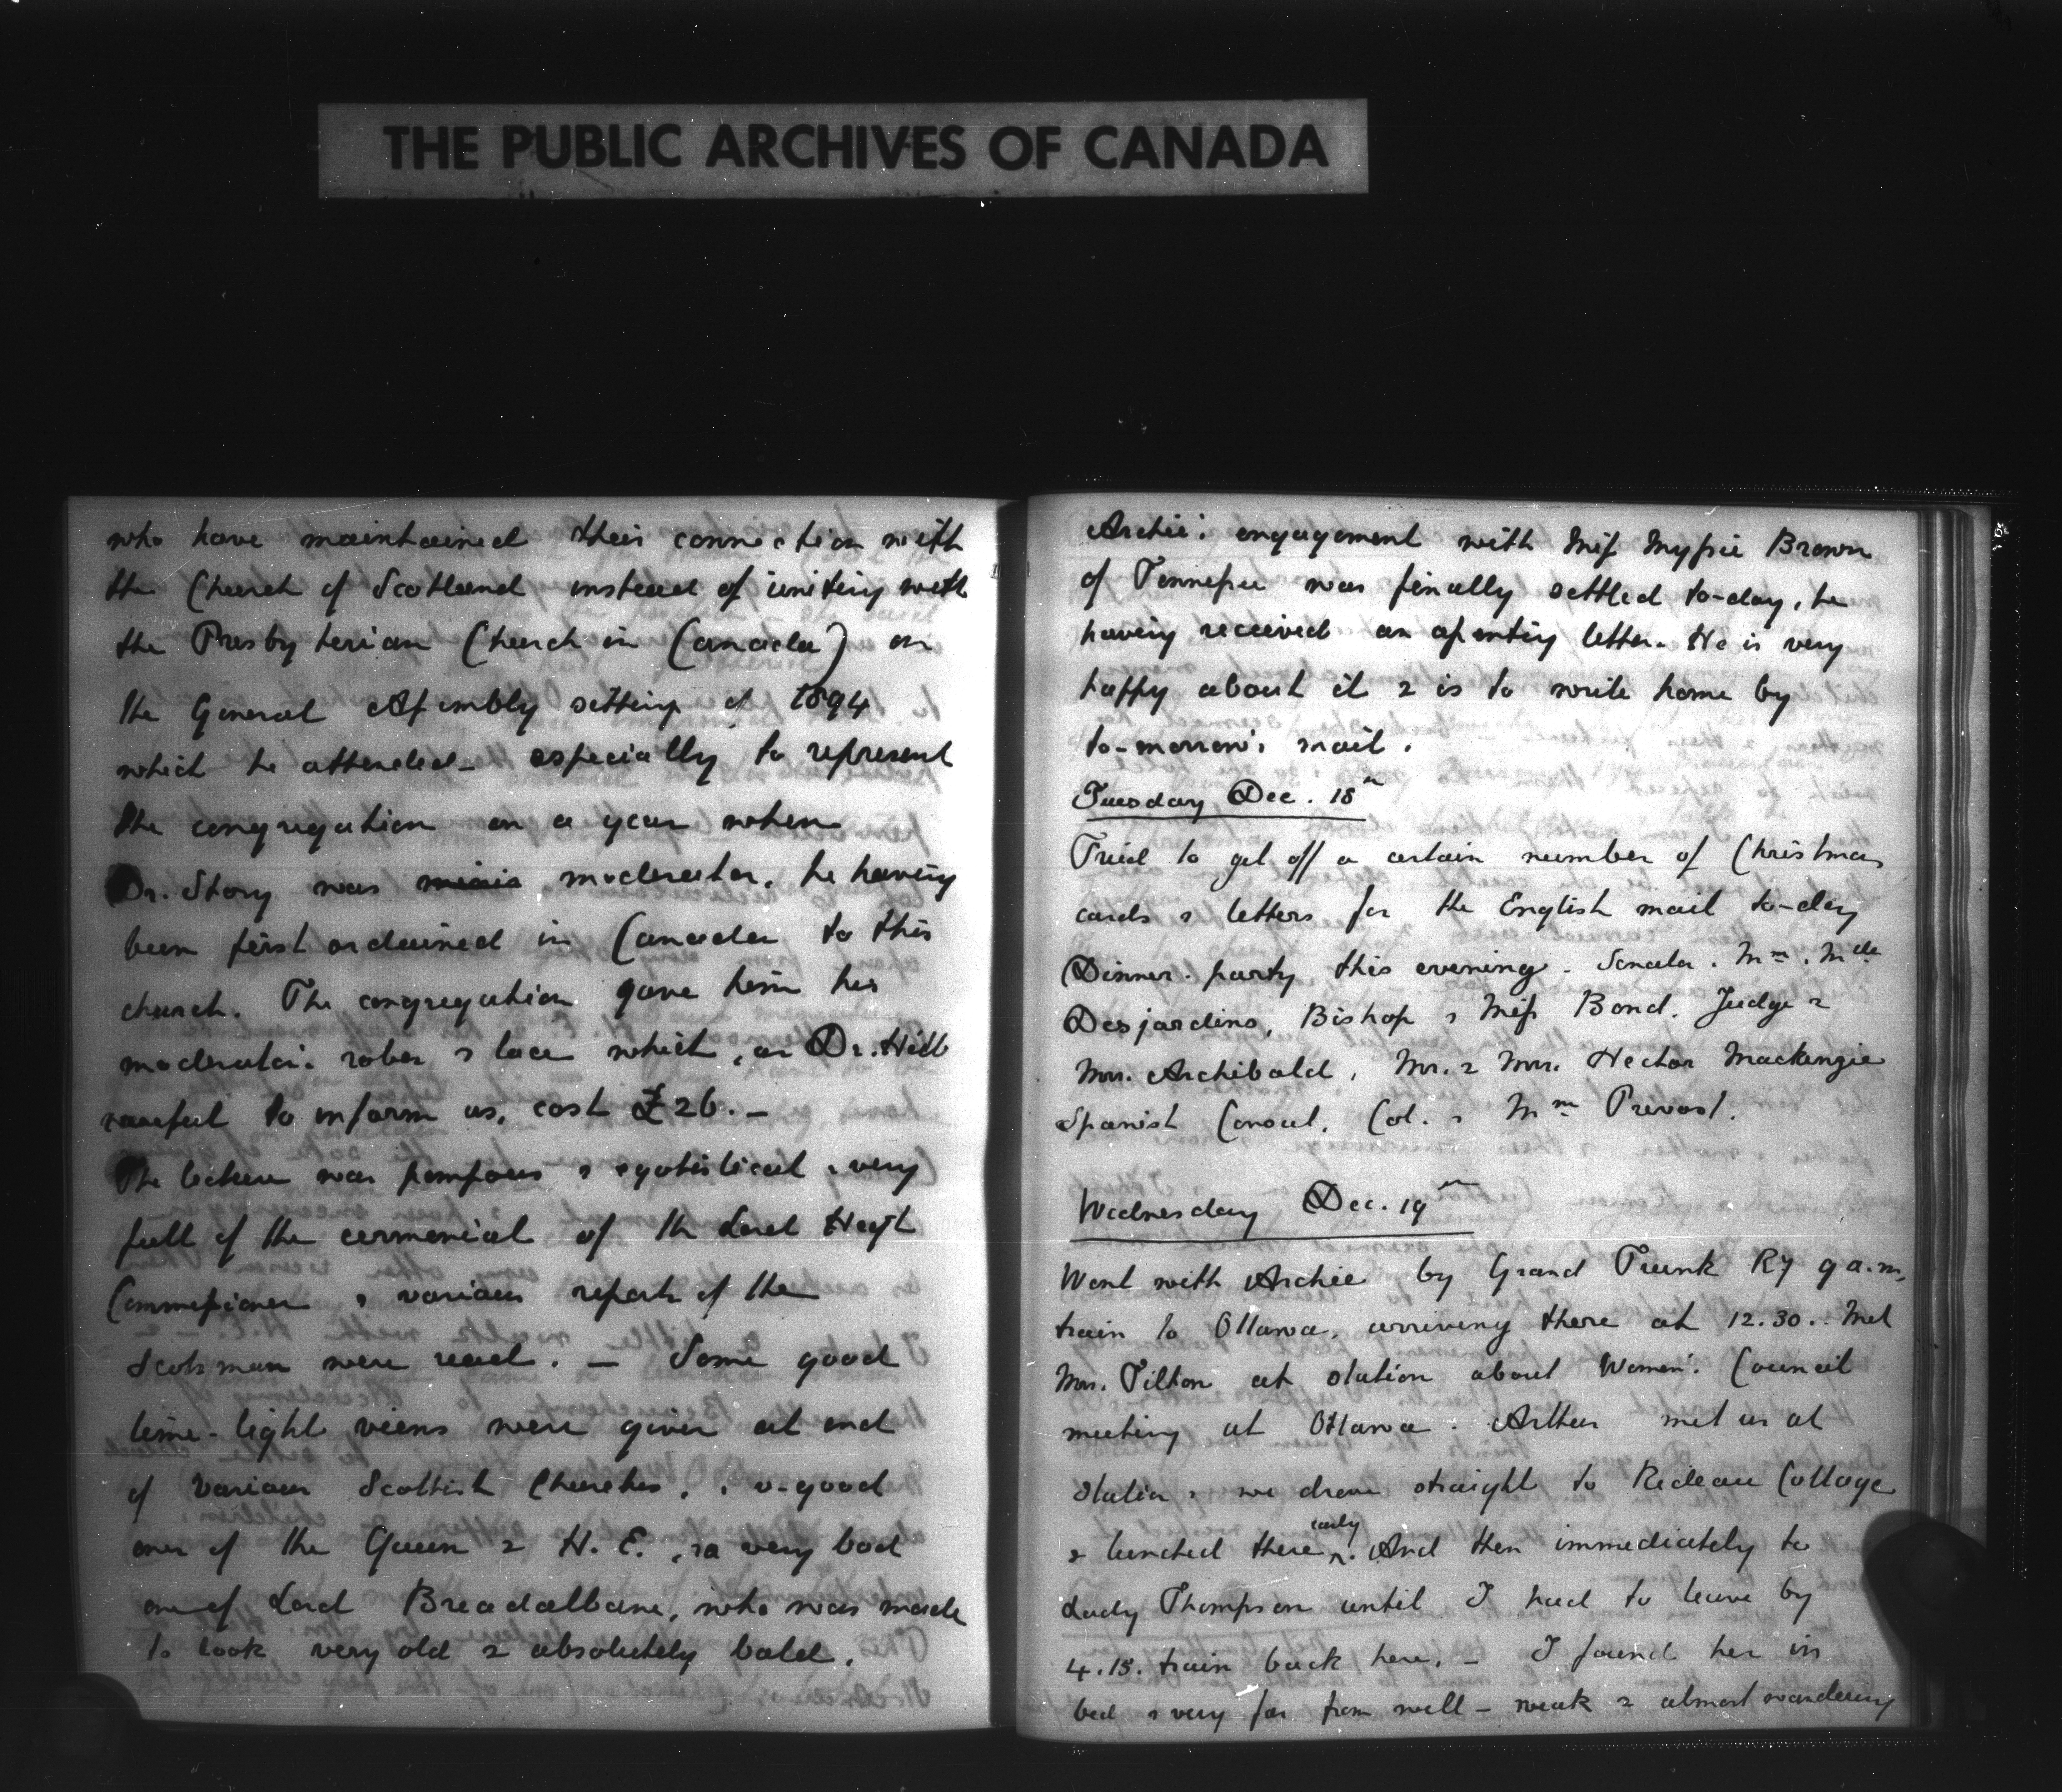 THE PUBLIC ARCHIVES OF CANADA
who have maintained their connection with
the Church of Scotland instead of uniting with
the Presbyterian Church in Canada) on
the General Assembly sitting of 1894
which he attended - especially to represent
the congregation on a year when
Dr. Story was moderator, he having
been first ordained in Canada to this
church. The congregation gave him his
moderator's robes & lace which, as Dr. Hill
to inform us, cost £26. –
The lecture was pompous & egotistical & very
full of the ceremonial of the Lord High
Commissioner & various reports of the
Scotsman were read. – Some good
lime-light views were given at end
of various Scottish Churches, & v-good
ones of the Queen & H. E., & a very bad
one of Lord Breadalbane, who was made
to look very old & absolutely bald.
Archie's engagement with Miss Myssie Brown
of Tennessee was finally settled to-day, he
having received an assenting letter. He is very
happy about it & is to write home by
to-morrow's mail.
Tuesday Dec. 18th
Tried to get off a certain number of Christmas
cards & letters for the English mail to-day
Dinner-party this evening - Senator, Mme, Mlle
Desjardins, Bishop & Miss Bond, Judge &
Mrs. Archibald, Mr. & Mrs. Hector Mackenzie
Spanish Consul, Col. & Mme Prévost.
Wednesday Dec. 19th
Went with Archie by Grand Trunk Ry 9 a.m.
train to Ottawa, arriving there at 12.30. Met
Mrs. Tilton at station about Women's Council
meeting at Ottawa. Arthur met us at
station & we drove straight to Rideau Cottage
& lunched there early. And then immediately to
Lady Thompson until I had to leave by
4.15. train back here. – I found her in
bed & very far from well – weak & almost wandering